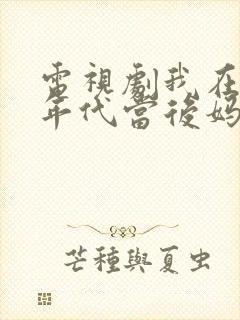 電視劇我在
年代當後媽
芒種與夏虫